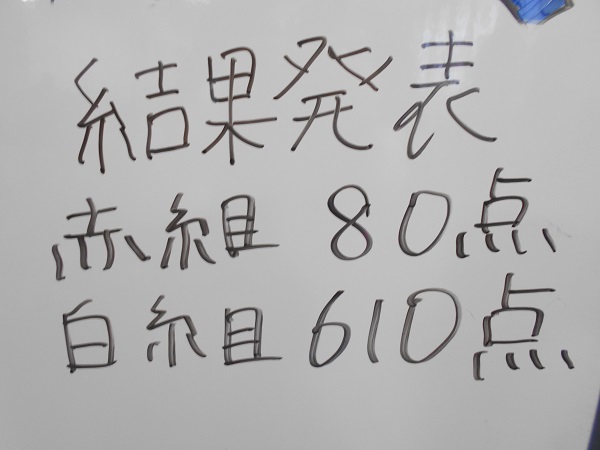 結果発表
赤組 80点
白組 610点